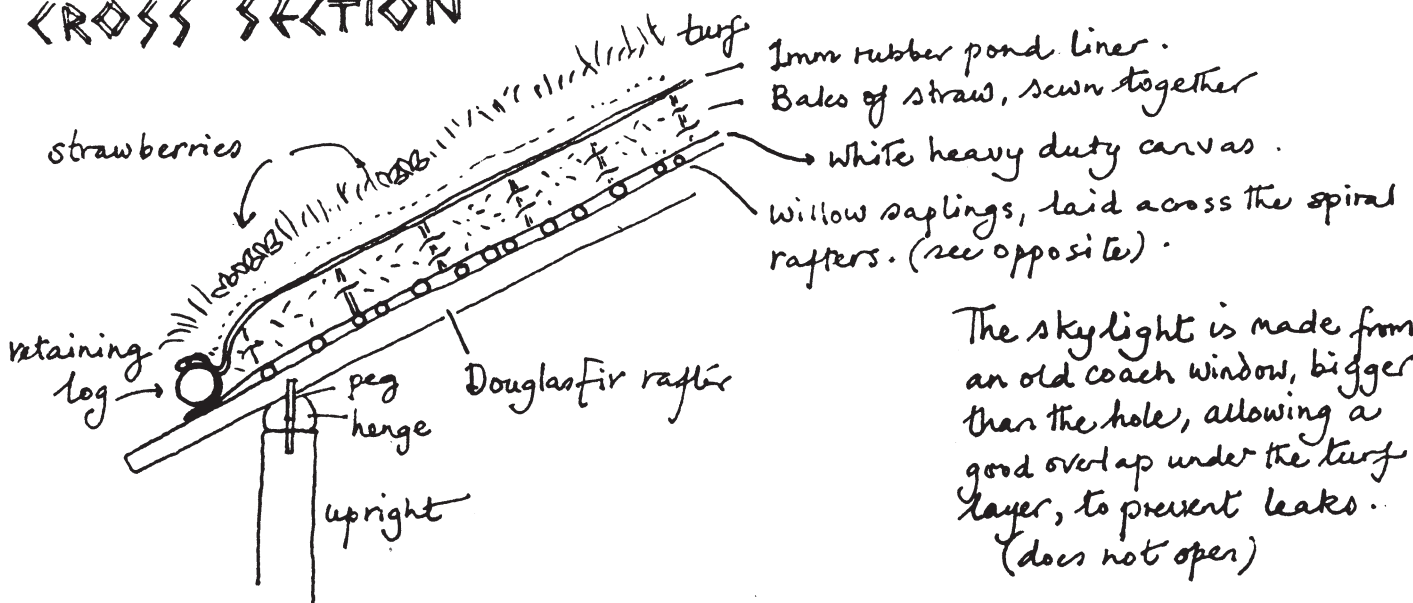 CROSS SECTION
turf
1mm rubber pond liner.
Bales of straw, sewn together
strawberries
white heavy duty canvas.
willow saplings, laid across the spiral
rafters. (see opposite).
retaining
log
peg
henge
Douglas fir rafter
upright
The skylight is made from
an old coach window, bigger
than the hole, allowing a
good overlap under the turf
layer, to prevent leaks.
(does not open)